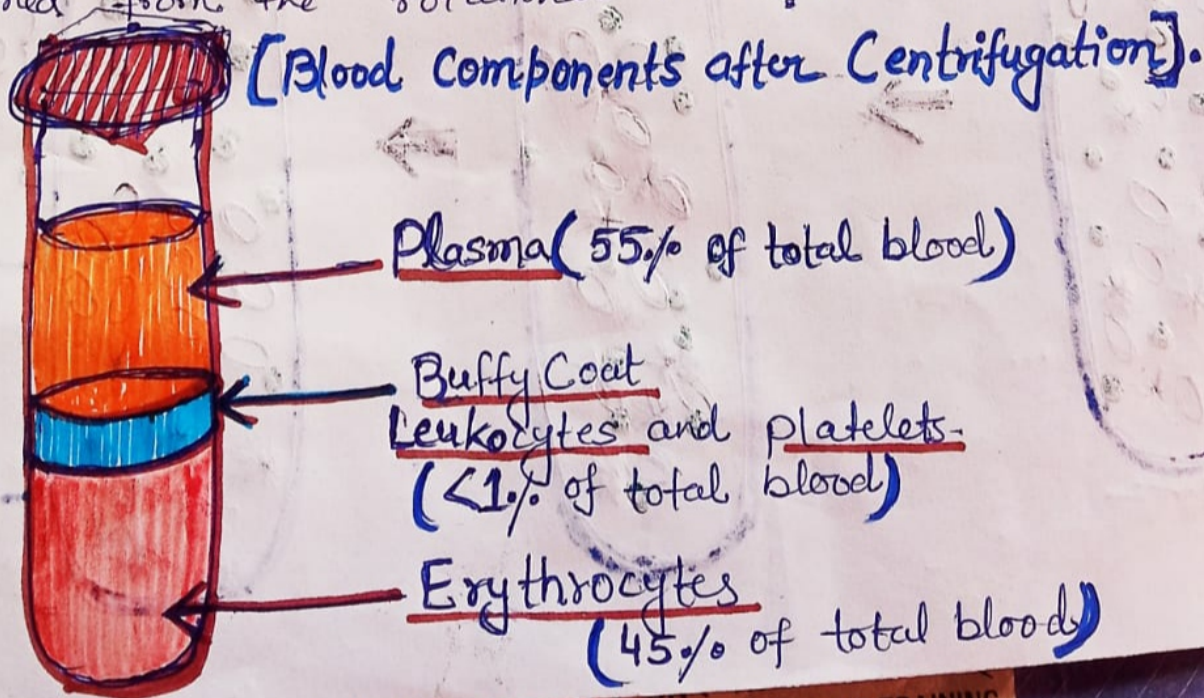 from the
[Blood Components after Centrifugation].
Plasma (55% of total blood)
Buffy Coat
Leukocytes and platelets.
(<1% of total blood)
Erythrocytes
(45% of total blood)